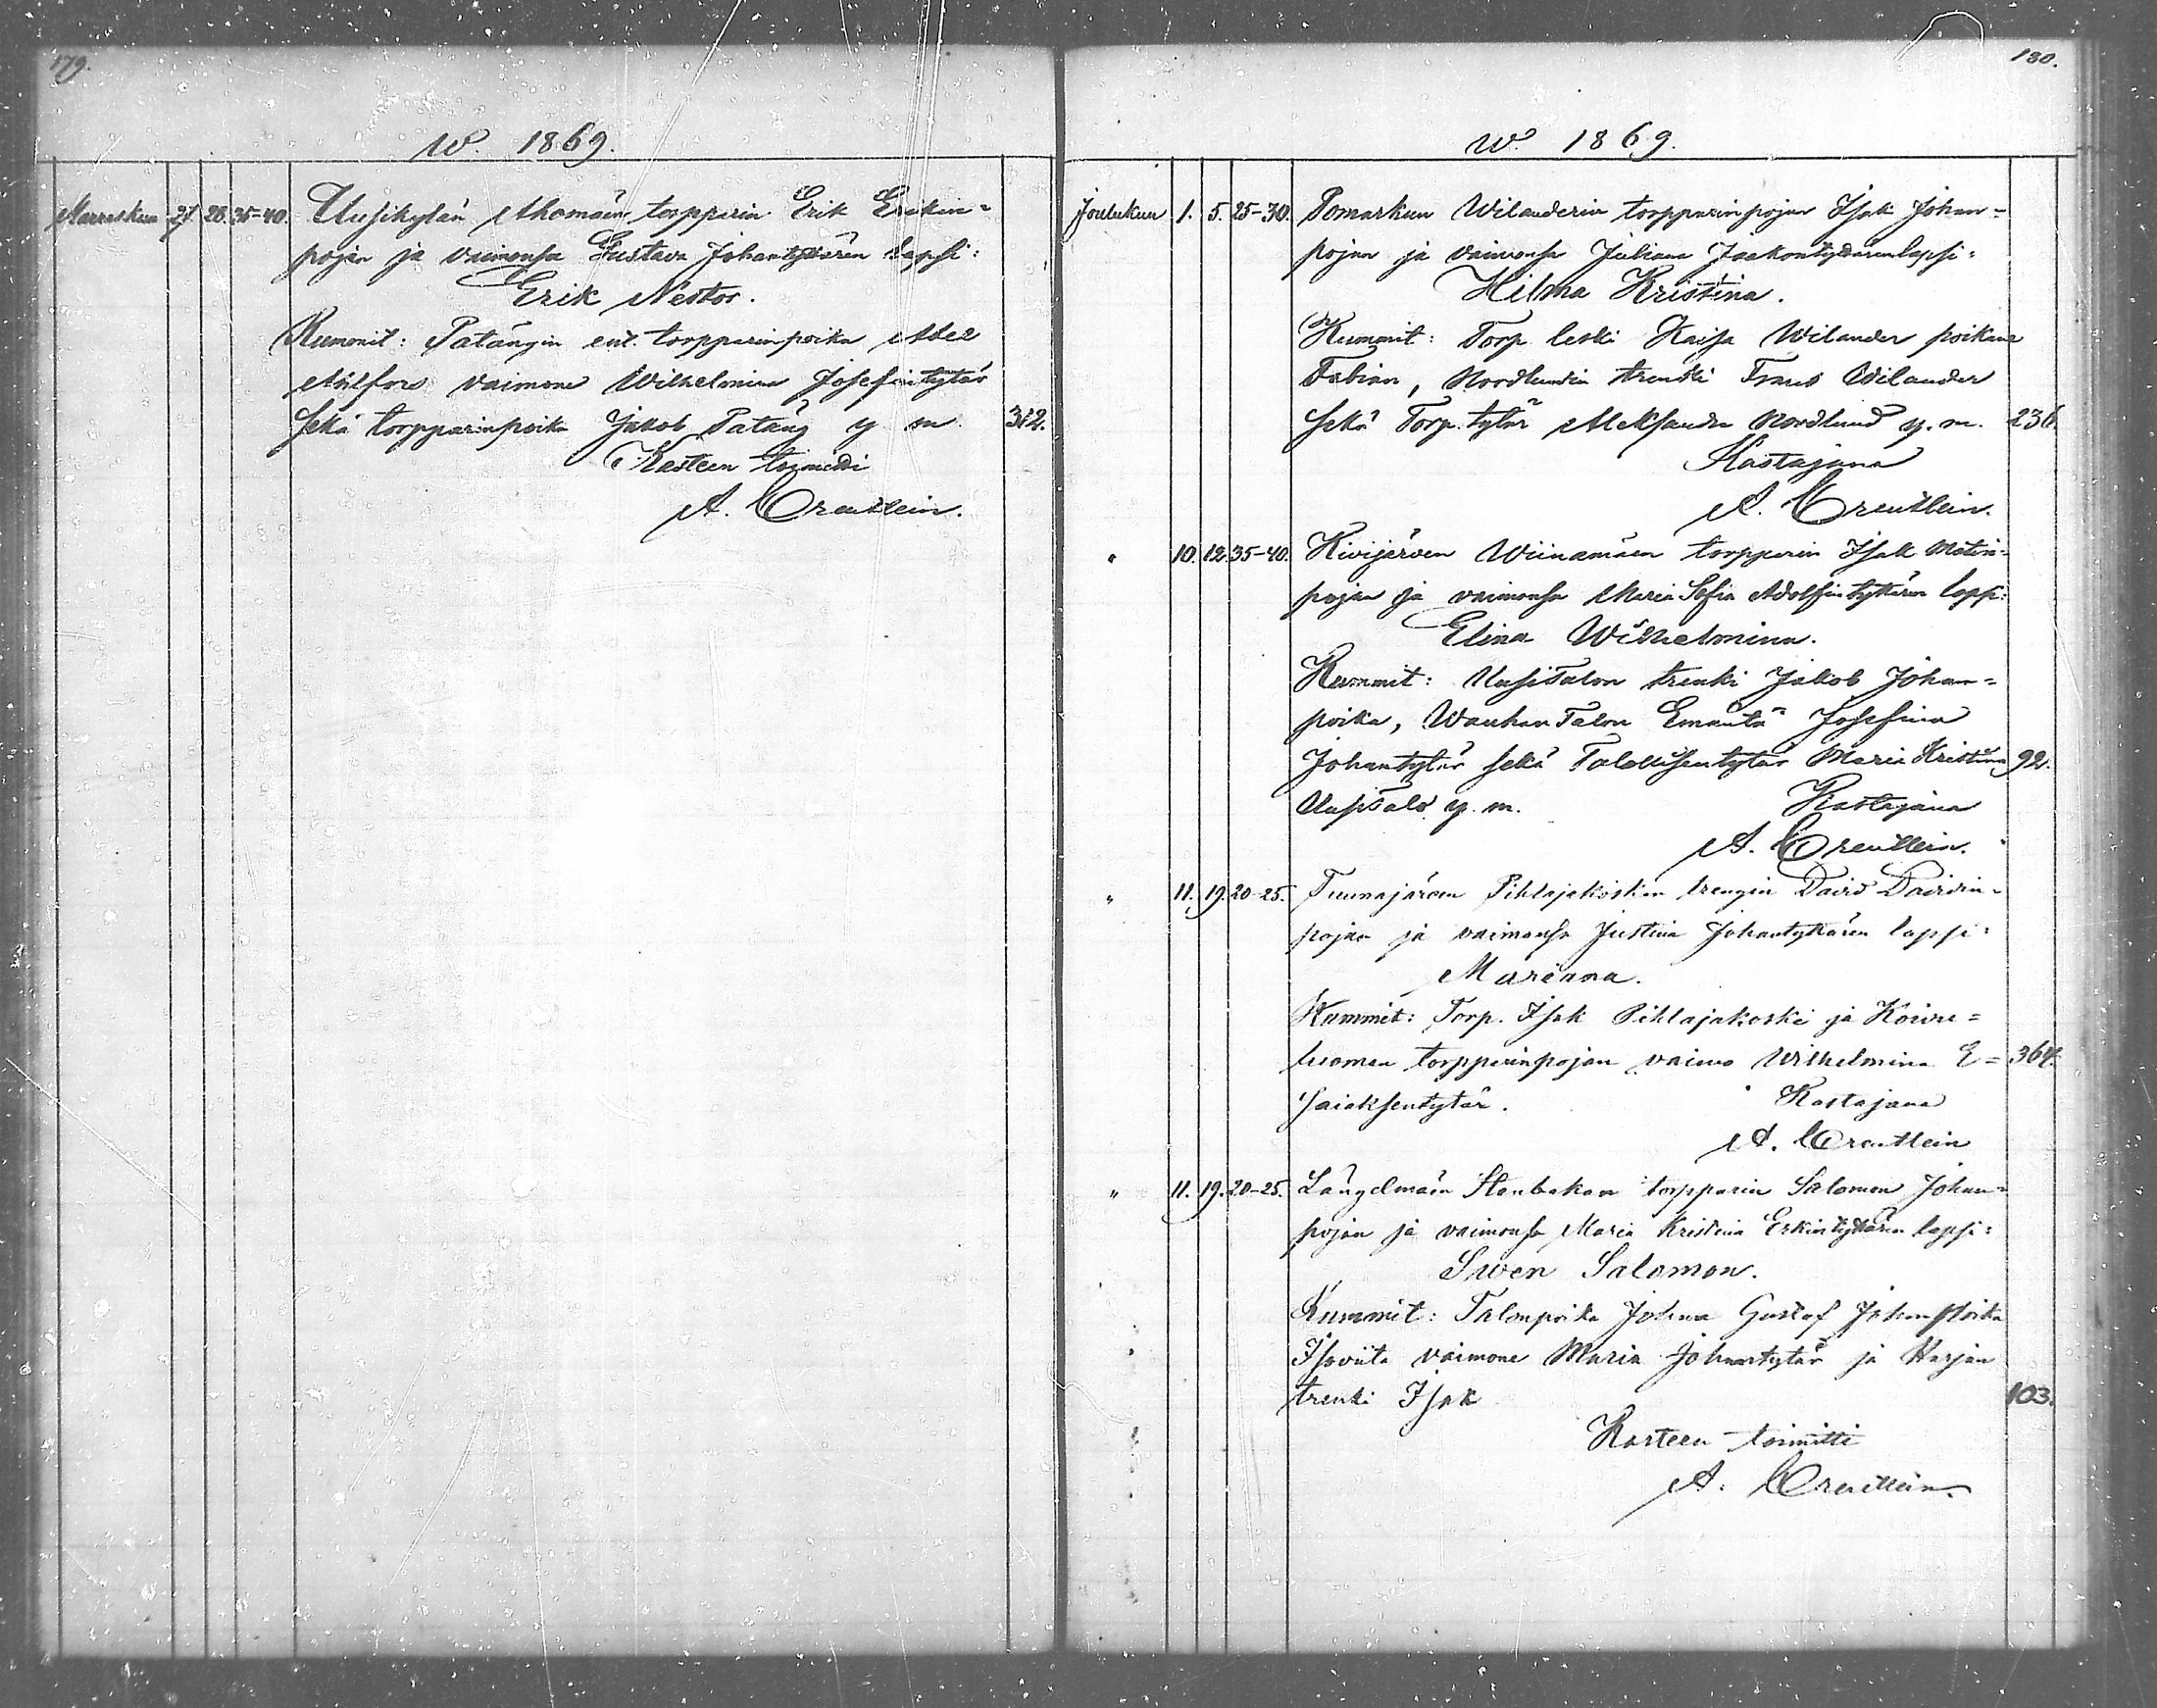 179.
W. 1869.
Marraskuu 27. 28. 35-40. Uusikylän Ahomäen torpparin Erik Erikin-
pojan ja vaimonsa Gustava Johantyttären lapsi:
Erik Nestor.
Kummit: Patängin ent. torpparinpoika Abel
vaimone Wilhelmina Josefintytär
sekä torpparinpoika Jakob Patäng y m. 312.
Kasteen toimitti
A. Creutlein.
180.
W. 1869.
Joulukuu 1. 5. 25-30. Pomarkun Wilanderin torpparinpojan Isak Johan-
pojan ja vaimonsa Juliana Jaakontyttären lapsi:
Hilma Kristina.
Kummit: Torp. leski Kaisa Wilander poikane
Fabian, Nordlundin trenki Frans Wilander
sekä Torp. tytär Aleksandra Nordlund y. m. 236.
Kastajana
A. Creutlein.
" 10. 12. 35-40. Kivijärven Wiinamäen torpparin Isak Matin-
pojan ja vaimonsa Maria Sofia Adolfintyttären lapsi:
Elina Wilhelmina.
Kummit: Uusitalon trenki Jakob Johan-
poika, Wanhan Talon Emäntä Josefina
Johantytär sekä Talollisentytär Maria Kristina 92.
Uusitalo y. m. Kastajana
A. Creutlein.
" 11. 19. 20-25. Tuunajärven Pihlajakosken trengin David Davidin-
pojan ja vaimonsa Justina Johantyttären lapsi:
Mariana.
Kummit: Torp. Isak Pihlajakoski ja Koivu-
luoman torpparinpojan vaimo Wilhelmina E- 364.
saiaksentytär. Kastajana
A. Creutlein
" 11. 19. 20-25. Längelmäen Stenbakan torpparin Salomon Johan-
pojan ja vaimonsa Maria Kristina Erkintyttären lapsi:
Swen Salomon.
Kummit: Talonpoika Johan Gustaf Johanpoika
Isoviita vaimone Maria Johantytär ja Harjan
trenki Isak 103.
Kasteen toimitti
A. Creutlein.